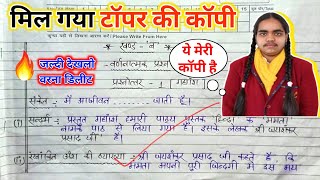 मिल गया टॉपर की कॉपी
जल्दी देखलो
वरना डिलीट
ये मेरी
कॉपी है
Please Write From Here
खण्ड - 'ब'
वर्णनात्मक प्रश्न
प्रश्नोत्तर - 1
गद्यांश
संकेत - मैं आजीवन ........ जाती हूँ।
सन्दर्भ - प्रस्तुत गद्यांश हमारी पाठ्य पुस्तक हिन्दी के 'ममता'
नामक पाठ से लिया गया है। इसके लेखक श्री जयशंकर
प्रसाद जी हैं।
रेखांकित अंश की व्याख्या - श्री जयशंकर प्रसाद जी कहते हैं, कि
ममता अपनी पूरी जिन्दगी में इस भय